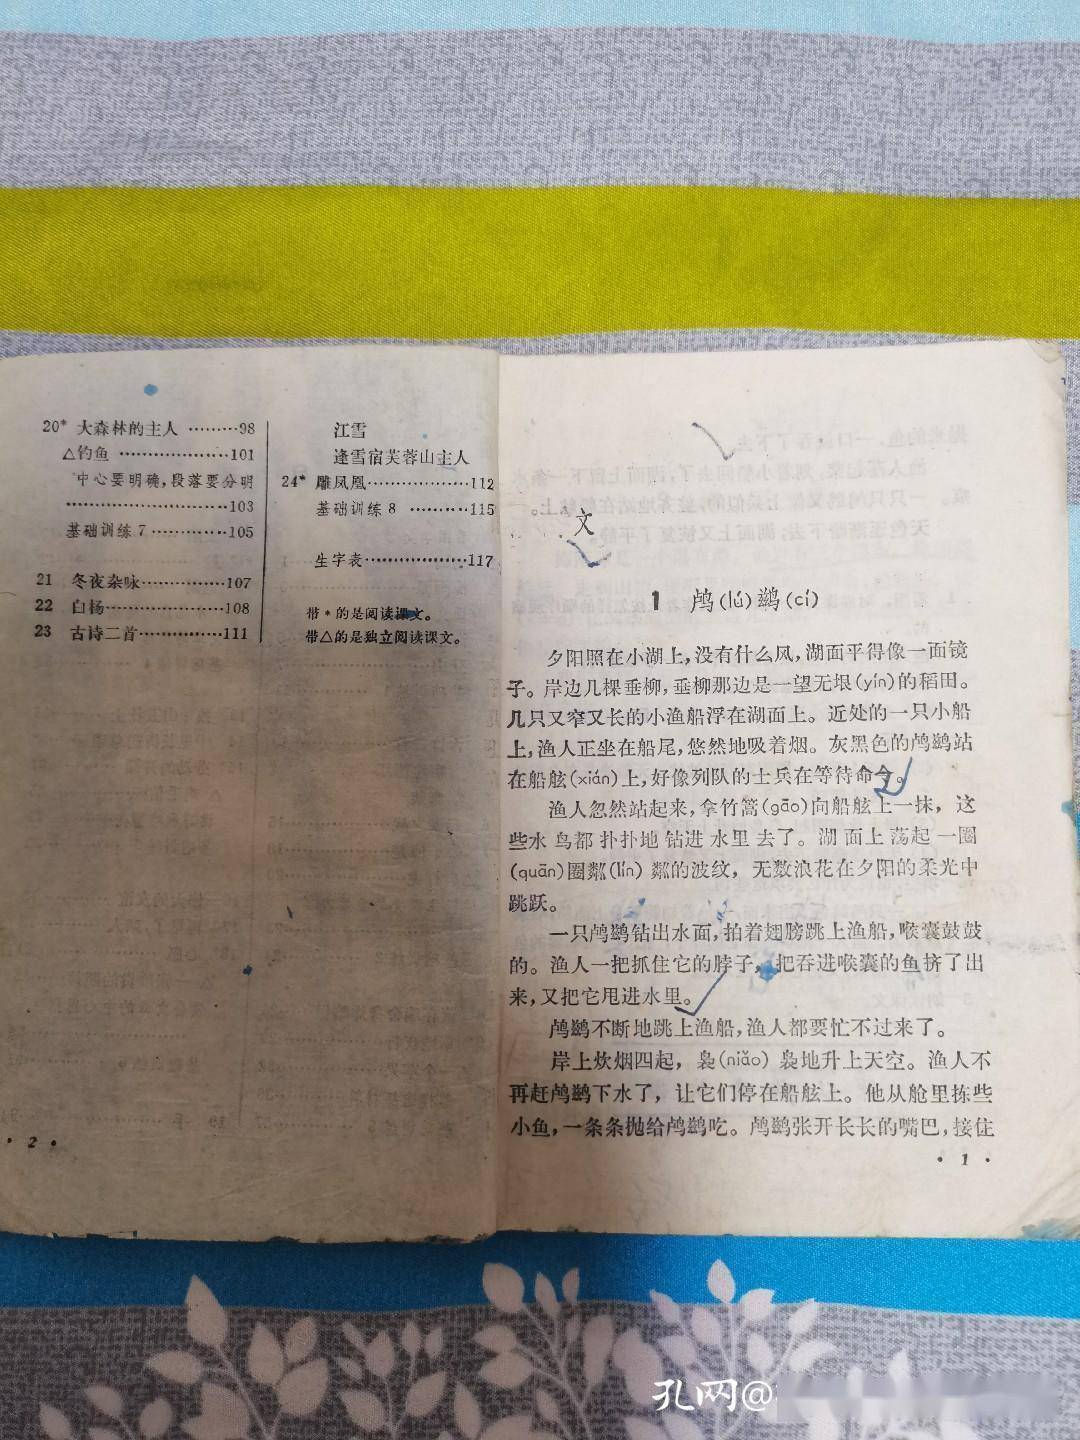 20* 大森林的主人 ………98
△钓鱼 ………………101
中心要明确，段落要分明
………………………103
基础训练7 …………105
21 冬夜杂咏…………107
22 白杨………………108
23 古诗二首…………111
江雪
逢雪宿芙蓉山主人
24* 雕凤凰……………112
基础训练8 …………115
生字表………………117
带*的是阅读课文。
带△的是独立阅读课文。
• 2 •
文
1 鸬(lú)鹚(cí)
夕阳照在小湖上，没有什么风，湖面平得像一面镜
子。岸边几棵垂柳，垂柳那边是一望无垠(yín)的稻田。
几只又窄又长的小渔船浮在湖面上。近处的一只小船
上，渔人正坐在船尾，悠然地吸着烟。灰黑色的鸬鹚站
在船舷(xián)上，好像列队的士兵在等待命令。
渔人忽然站起来，拿竹篙(gāo)向船舷上一抹，这
些水鸟都扑扑地钻进水里去了。湖面上荡起一圈
(quān)圈粼(lín)粼的波纹，无数浪花在夕阳的柔光中
跳跃。
一只鸬鹚钻出水面，拍着翅膀跳上渔船，喉囊鼓鼓
的。渔人一把抓住它的脖子，把吞进喉囊的鱼挤了出
来，又把它甩进水里。
鸬鹚不断地跳上渔船，渔人都要忙不过来了。
岸上炊烟四起，袅(niǎo)袅地升上天空。渔人不
再赶鸬鹚下水了，让它们停在船舷上。他从舱里拣些
小鱼，一条条抛给鸬鹚吃。鸬鹚张开长长的嘴巴，接住
• 1 •
孔网@